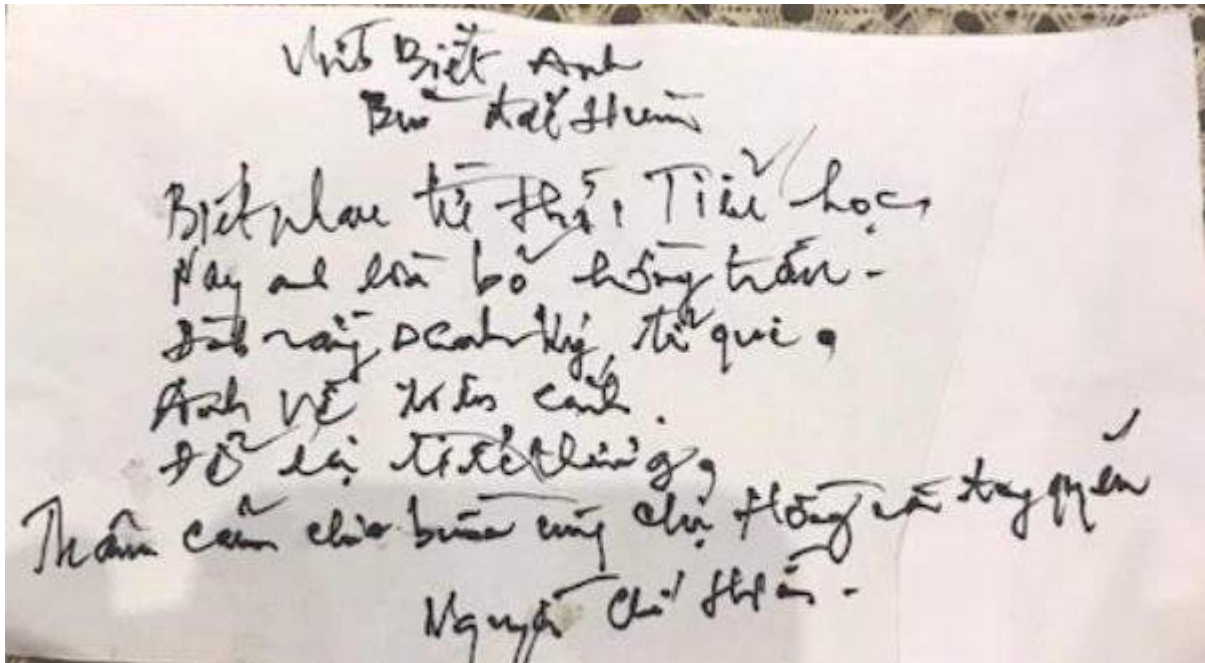 Vĩnh Biệt Anh
Bùi Đắc Hùm
Biết nhau từ thời Tiểu học,
Nay anh lìa bỏ hồng trần -
rằng sinh ký, tử qui,
Anh về tiên cảnh.
Để lại tiếc thương,
Thâm cảm chia buồn cùng chị Hồng và tang quyến
Nguyễn Chí Thiện -